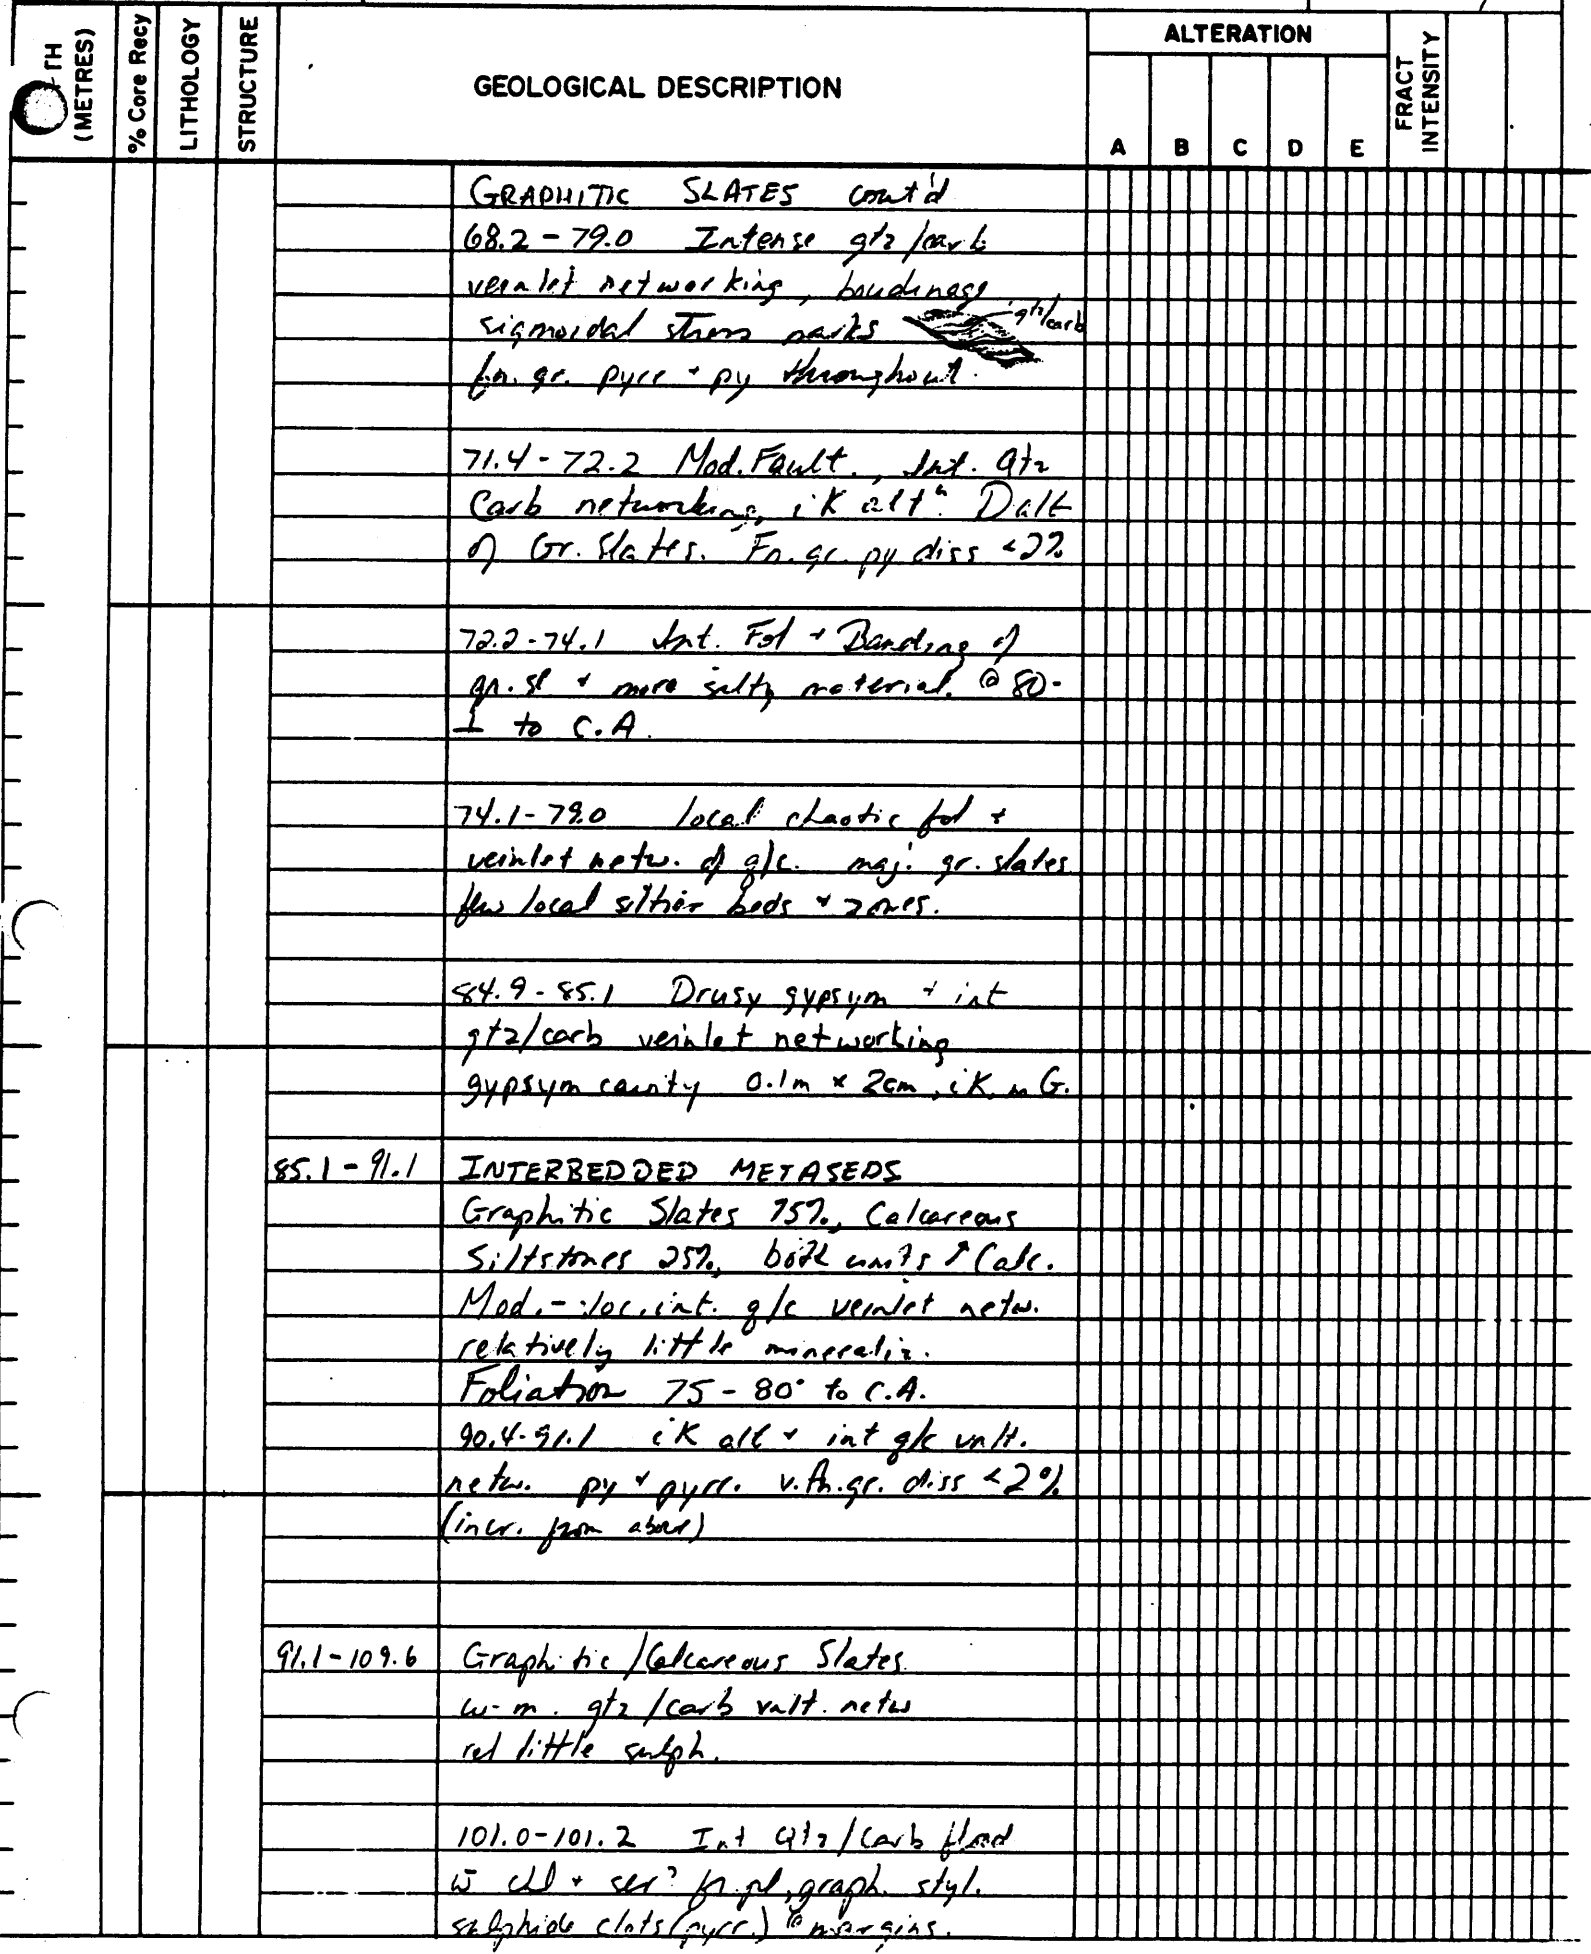 TH (METRES)
% Core Recy
LITHOLOGY
STRUCTURE
GEOLOGICAL DESCRIPTION
ALTERATION
A B C D E
FRACT INTENSITY
GRAPHITIC SLATES cont'd
68.2 - 79.0 Intense qtz/carb
veinlet networking, boudinage
sigmoidal stress marks qtz/carb
fn. gr. pyrr + py throughout.
71.4 - 72.2 Mod. Fault., Int. Qtz
Carb networking, iK alt<sup>n</sup>. D alt
of Gr. Slates. Fn. gr. py diss <2%
72.2 - 74.1 Int. Fol + Banding of
gr. sl + more silty material. @ 80-
⊥ to C.A.
74.1 - 79.0 local chaotic fol +
veinlet netw. of q/c. maj. gr. slates
few local siltier beds + zones.
84.9 - 85.1 Drusy gypsym + int
qtz/carb veinlet networking
gypsym cavity 0.1m x 2cm, iK, mG.
85.1 - 91.1 INTERBEDDED METASEDS
Graphitic Slates 75%, Calcareous
Siltstones 25%, both units ↑ Calc.
Mod. - loc. int. q/c veinlet netw.
relatively little mineraliz.
Foliation 75 - 80° to C.A.
90.4 - 91.1 iK alt + int q/c vnlt.
netw. py + pyrr. v. fn. gr. diss <2%
(incr. from above)
91.1 - 109.6 Graphitic/Calcareous Slates
w-m. qtz/carb vnlt. netw
rel little sulph.
101.0 - 101.2 Int Qtz/Carb flood
w̄ chl + ser? graph. styl.
sulphide clots (pyrr.) @ margins.